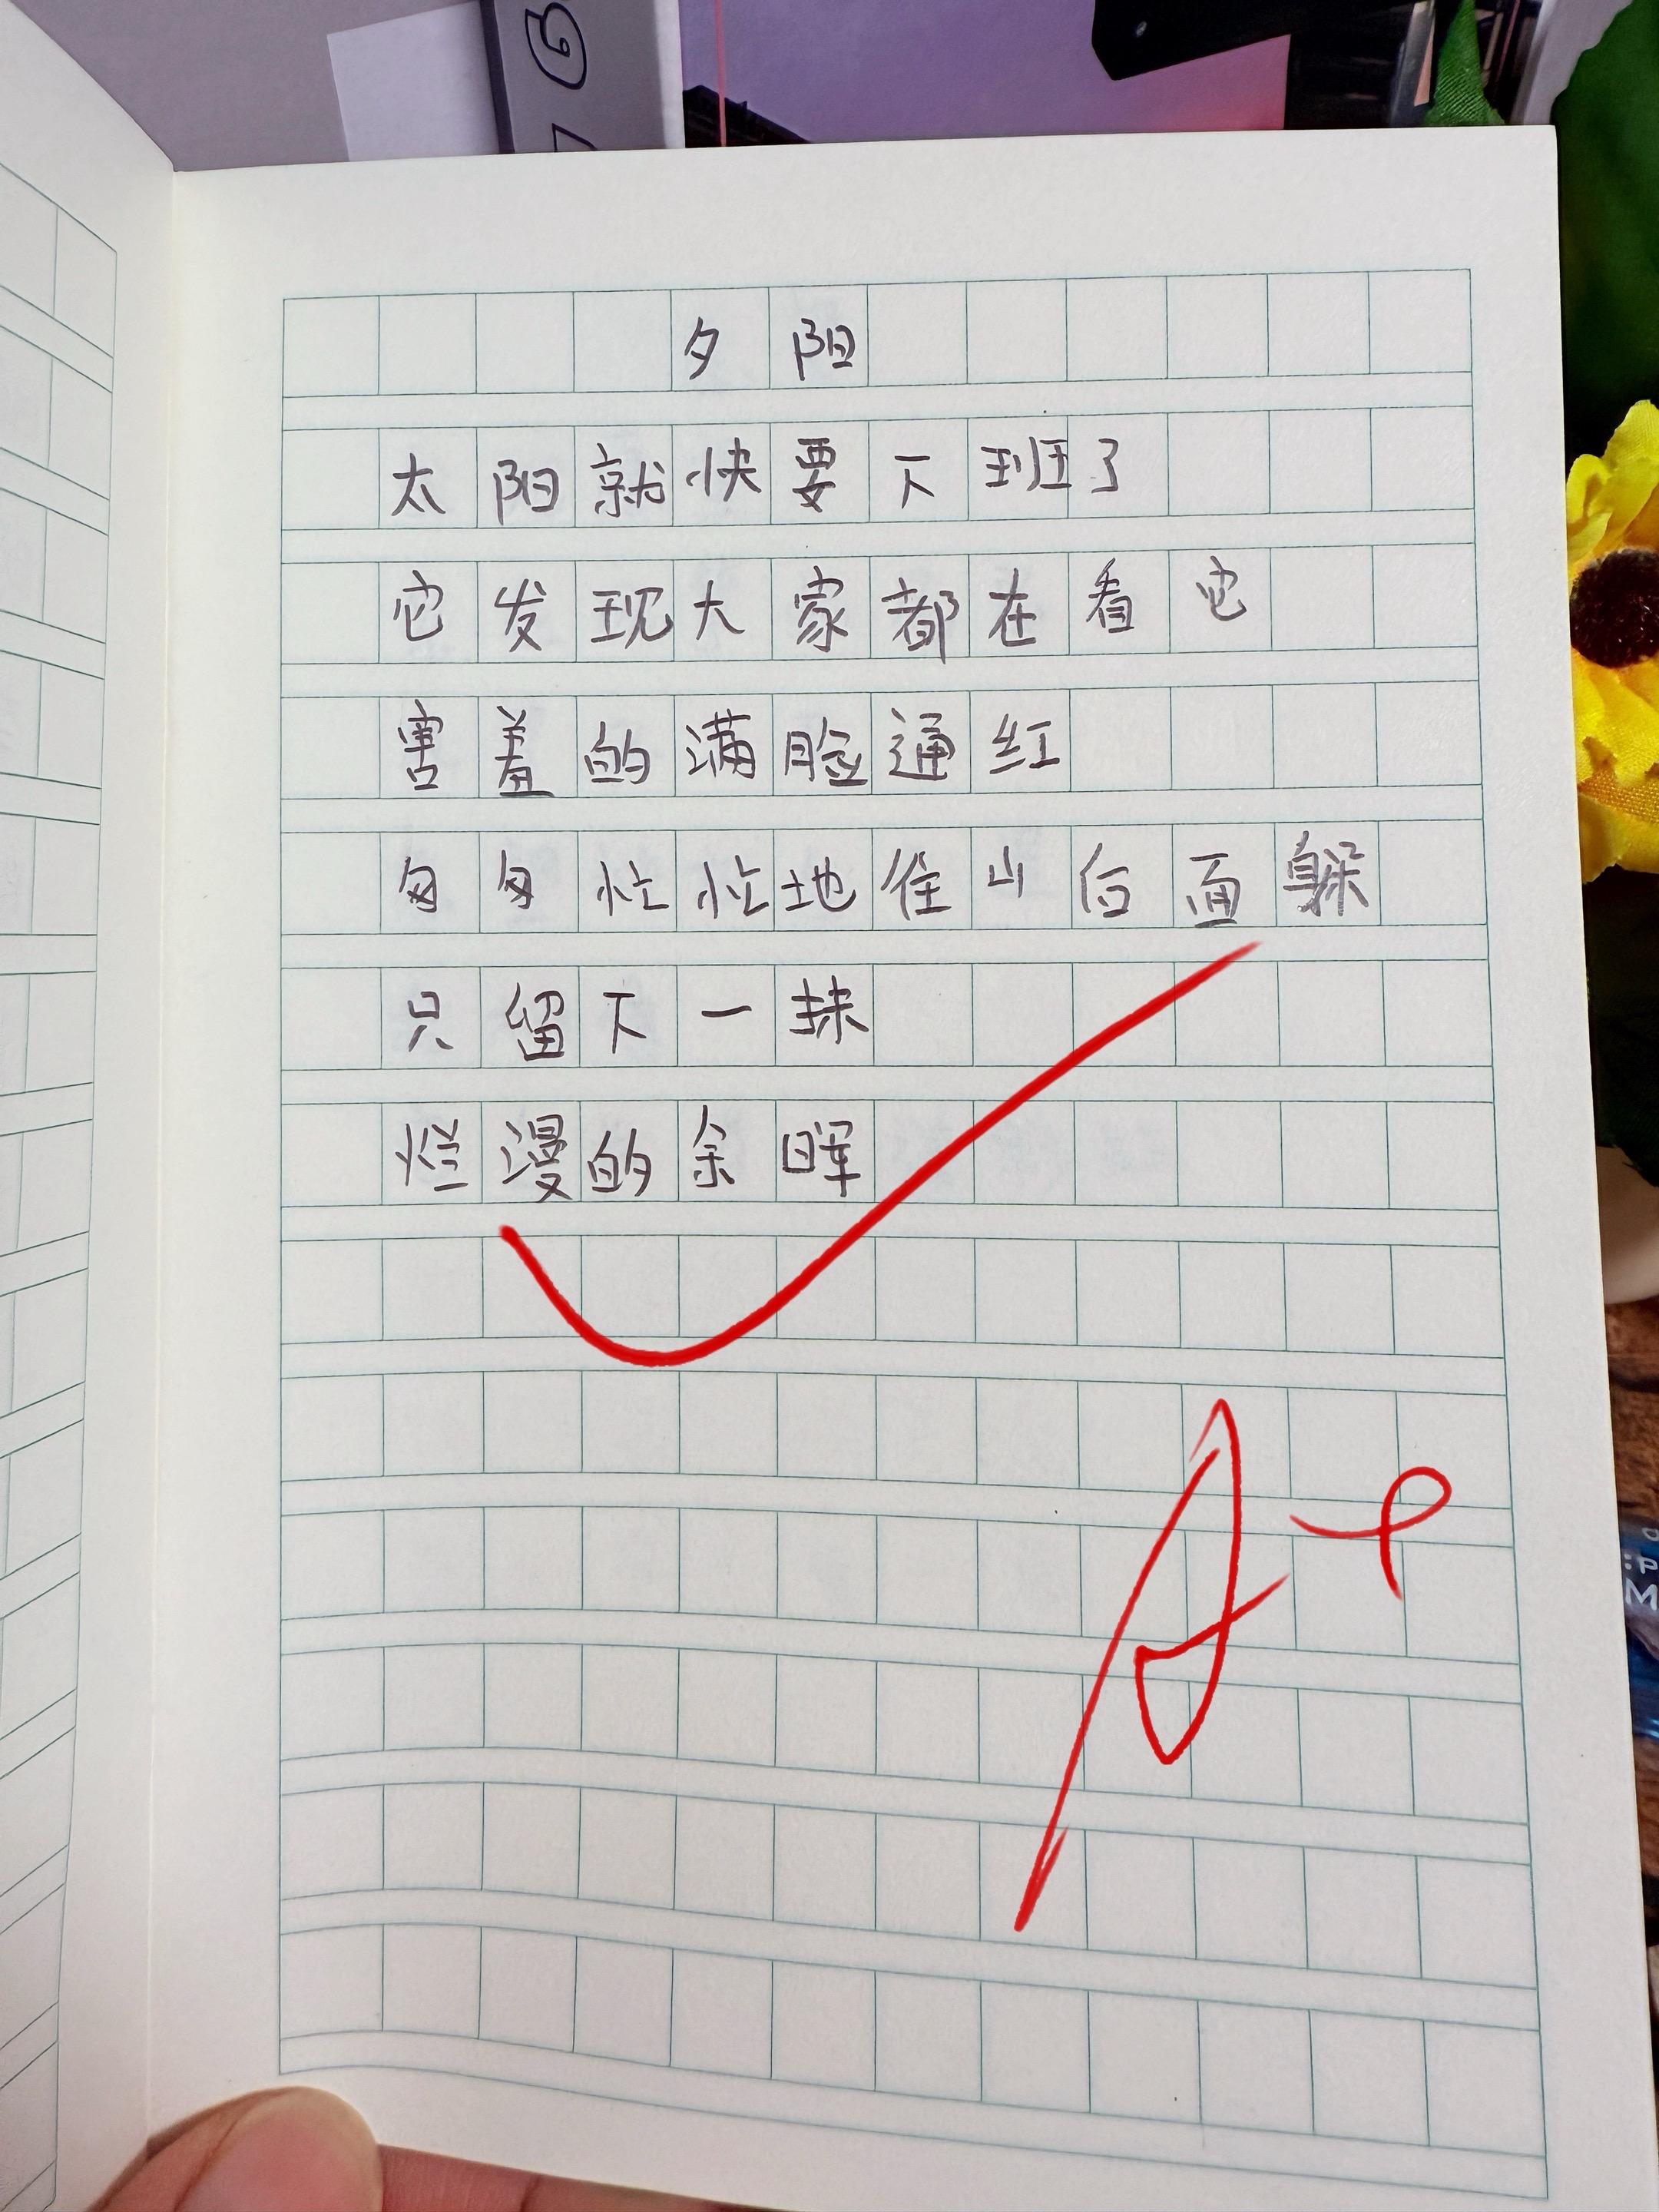 夕阳
太阳就快要下班了
它发现大家都在看它
害羞的满脸通红
匆匆忙忙地往山后面躲
只留下一抹
烂漫的余晖
A+